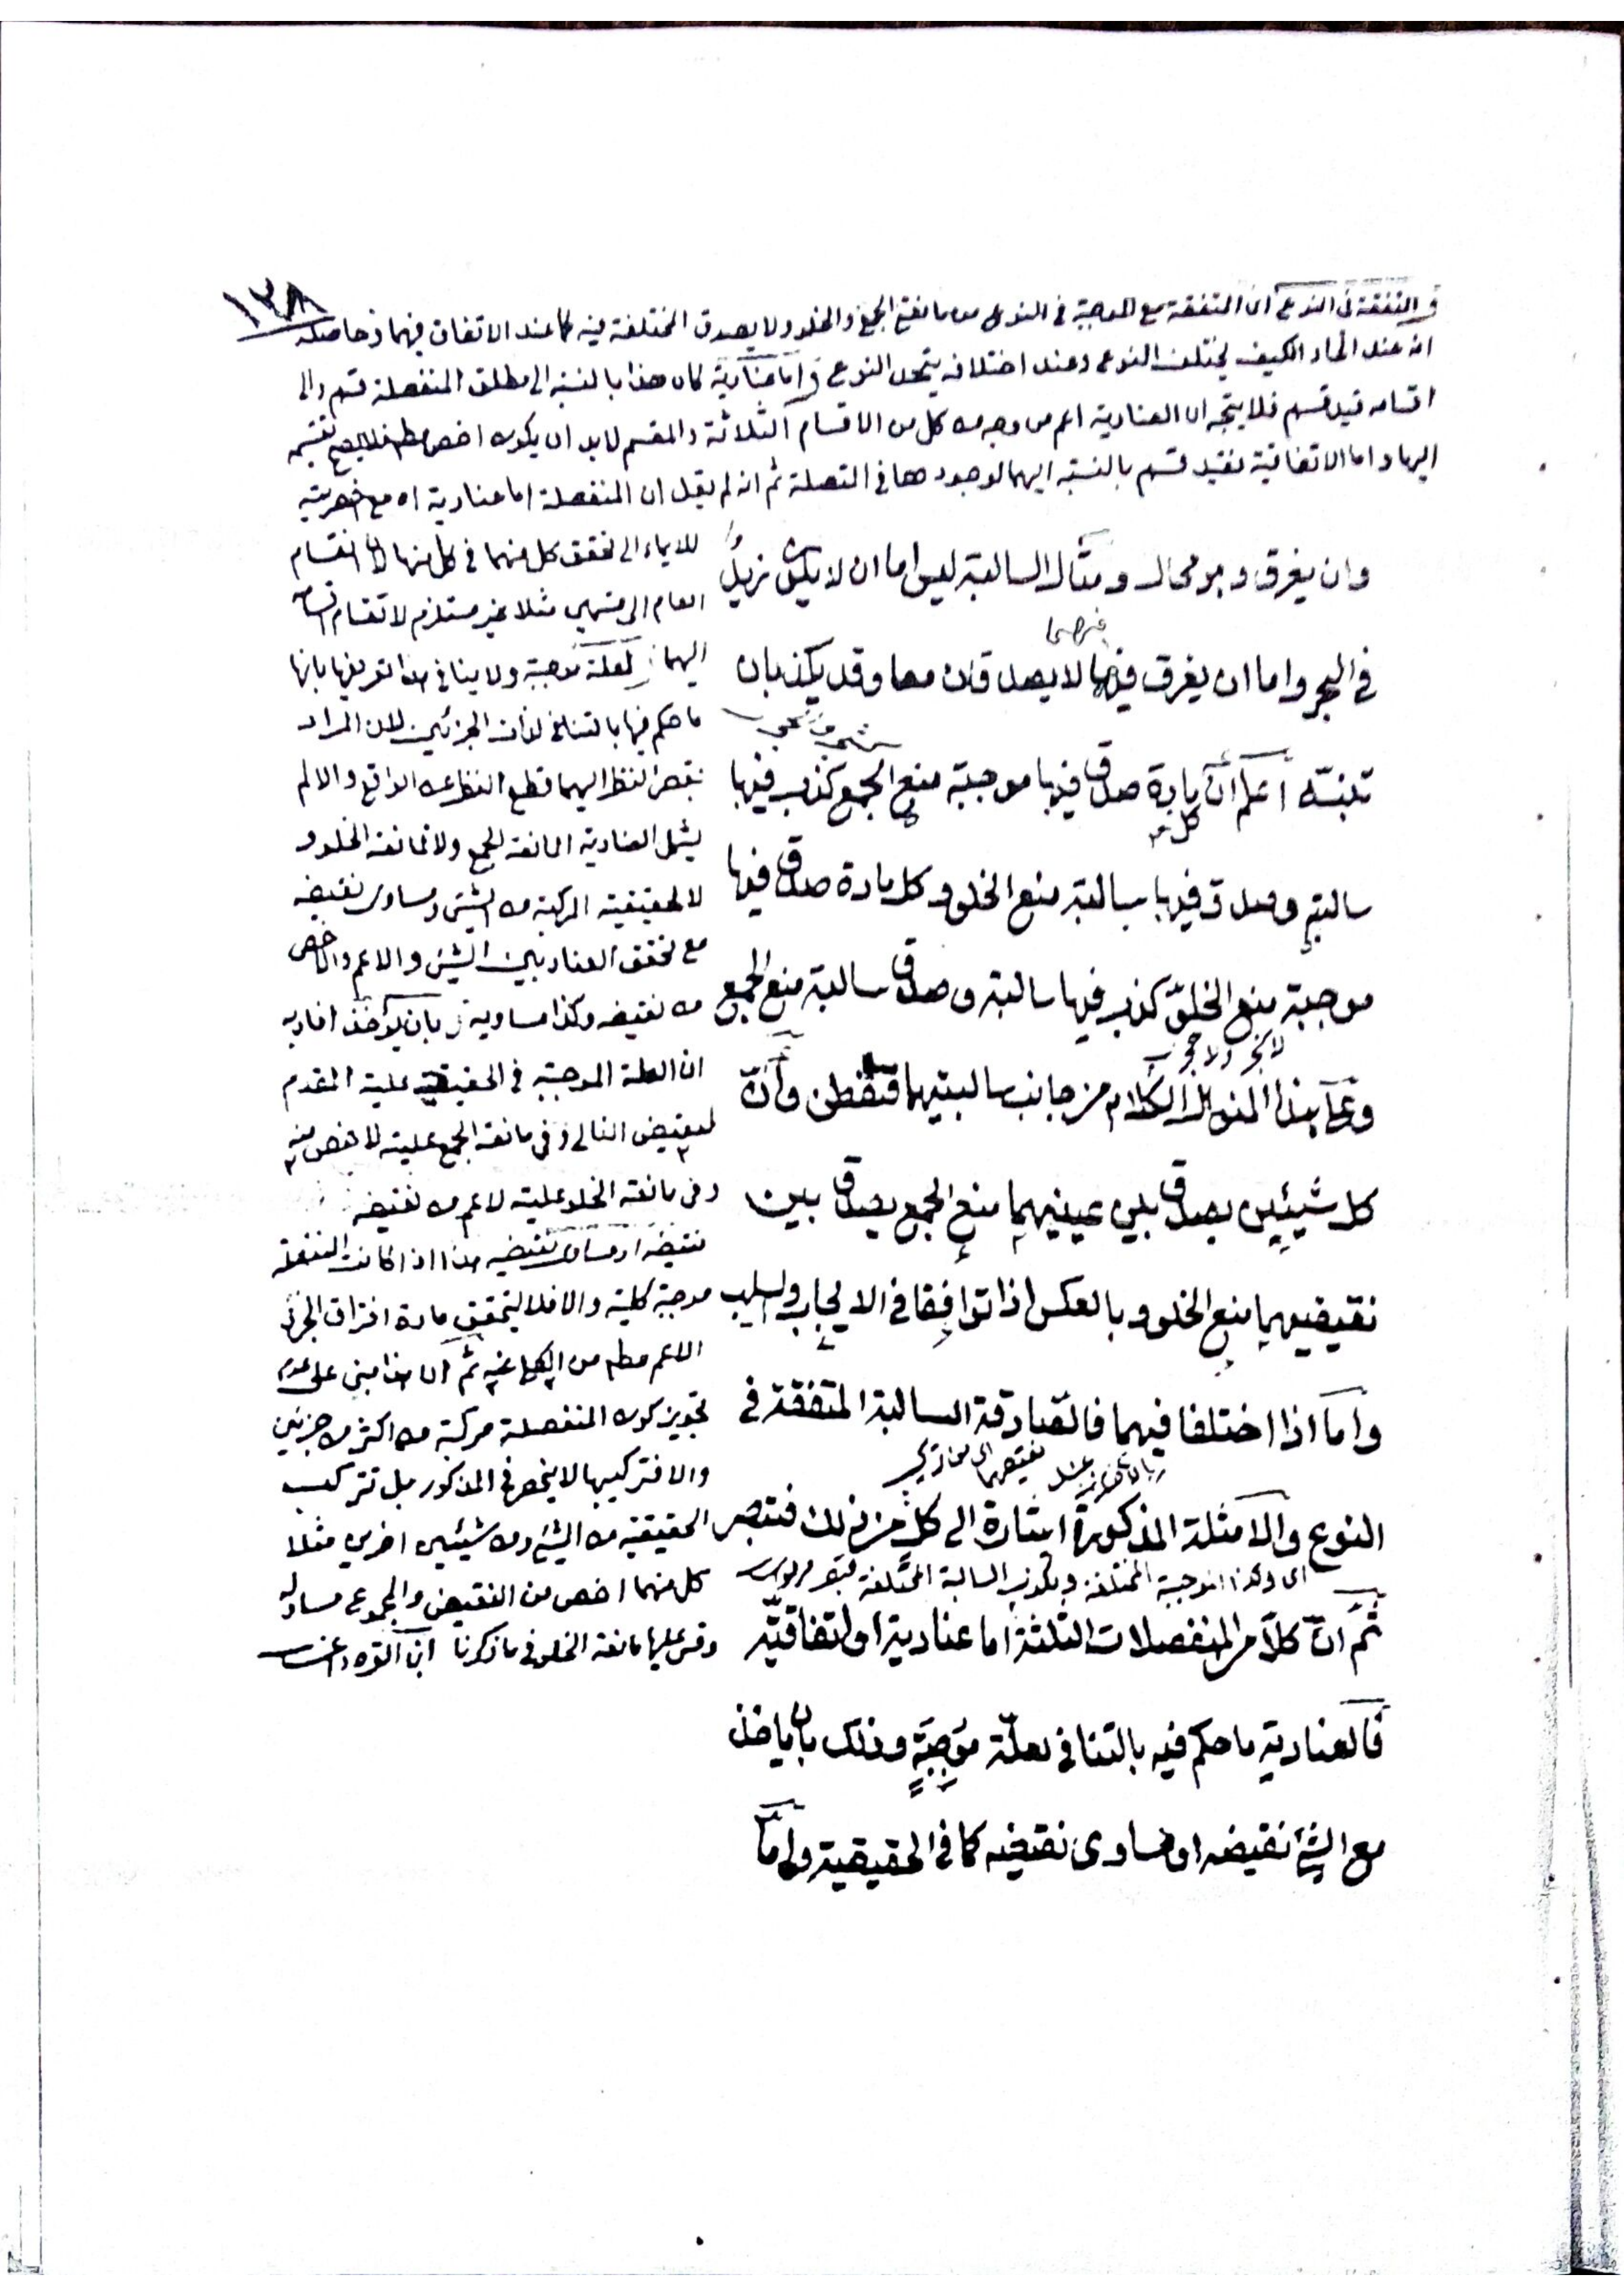 ١٣٨
و المتفقة فى النوع اى المتفقة مع الموجبة فى النوع من مانعتى الجمع والخلو ولا يصدق المختلفة فيه كما عند الاتفاق فيهما فحاصله
انه عند اتحاد الكيف يختلف النوع وعند اختلافه يتحد النوع و اما عنادية كان هذا بالنسبة الى مطلق المنفصلة قسم والى
اقسامه قيد قسم فلا يتجه ان العنادية اعم من وجه من كل من الاقسام الثلاثة والمقسم لابد ان يكون اخص مطلقا فلا يصح تقسيمه
اليها واما الاتفاقية فقيد قسم بالنسبة اليهما لوجودها فى المتصلة ثم انه لم يقل ان المنفصلة اما عنادية اه مع
وان يغرق وهو محال ومثال السالبة ليس اما ان لا يكون زيد
فى البحر واما ان يغرق فهما لا يصدقان معا وقد يكذبان
تنبيه اعلم ان كل مادة صدق فيها موجبة منع الجمع كذب فيها
سالبته وصدق فيها سالبة منع الخلو وكل مادة صدق فيها
موجبة منع الخلو كذب فيها سالبته وصدق سالبة منع الجمع
وعلى هذا المنوال الكلام من جانب سالبتيهما فتفطن وان
كل شيئين يصدق بين عينيهما منع الجمع يصدق بين
نقيضيهما منع الخلو وبالعكس اذا توافقا فى الايجاب والسلب
واما اذا اختلفا فيهما فالصادقة السالبة المتفقة فى
النوع والامثلة المذكورة اشارة الى كل من ذلك فتبصر
اى وكذا الموجبة المختلفة ويكذب السالبة المختلفة
ثم ان كلا من المنفصلات الثلثة اما عنادية او اتفاقية
فالعنادية ما حكم فيه بالتنافى لعلة موجبة وذلك بان ياخذ
مع الشئ نقيضه او مساوى نقيضه كما فى الحقيقية واما
للايماء الى تحقق كل منهما فى كل منها لان انقسام
العام الى قسمين مثلا غير مستلزم لانقسام
اليهما لعلة موجبة ولا ينافى هذا تعريفها بانها
ما حكم فيها بالتنافى لذات الجزئين لان المراد
النظر اليهما قطع النظر عن الواقع والا لم
يشمل العنادية المانعة الجمع ولا مانعة الخلو و
لا الحقيقية المركبة من الشئ ومساوى نقيضه
مع تحقق العناد بين الشئ والاعم والاخص
من نقيضه وكذا مساويه بان يؤخذ افاد به
ان العلة الموجبة فى الحقيقية علية المقدم
لنقيض التالى وفى مانعة الجمع عليته لاخص منه
وفى مانعة الخلو عليته لاعم من نقيضه
نقيضه او مساوى نقيضه هذا اذا كانت المنفصلة
موجبة كلية والا فلا ليتحقق مادة افتراق الجزئى
الاعم مطلقا من الكل ثم ان هذا مبنى على عدم
تجويز كون المنفصلة مركبة من اكثر من جزئين
والا فتركيبها لا ينحصر فى المذكور بل تتركب
الحقيقية من الشئ ومن شيئين اخرين مثلا
كل منهما اخص من النقيض والمجموع مساو له
وقس عليها مانعة الخلو فى ما ذكرنا